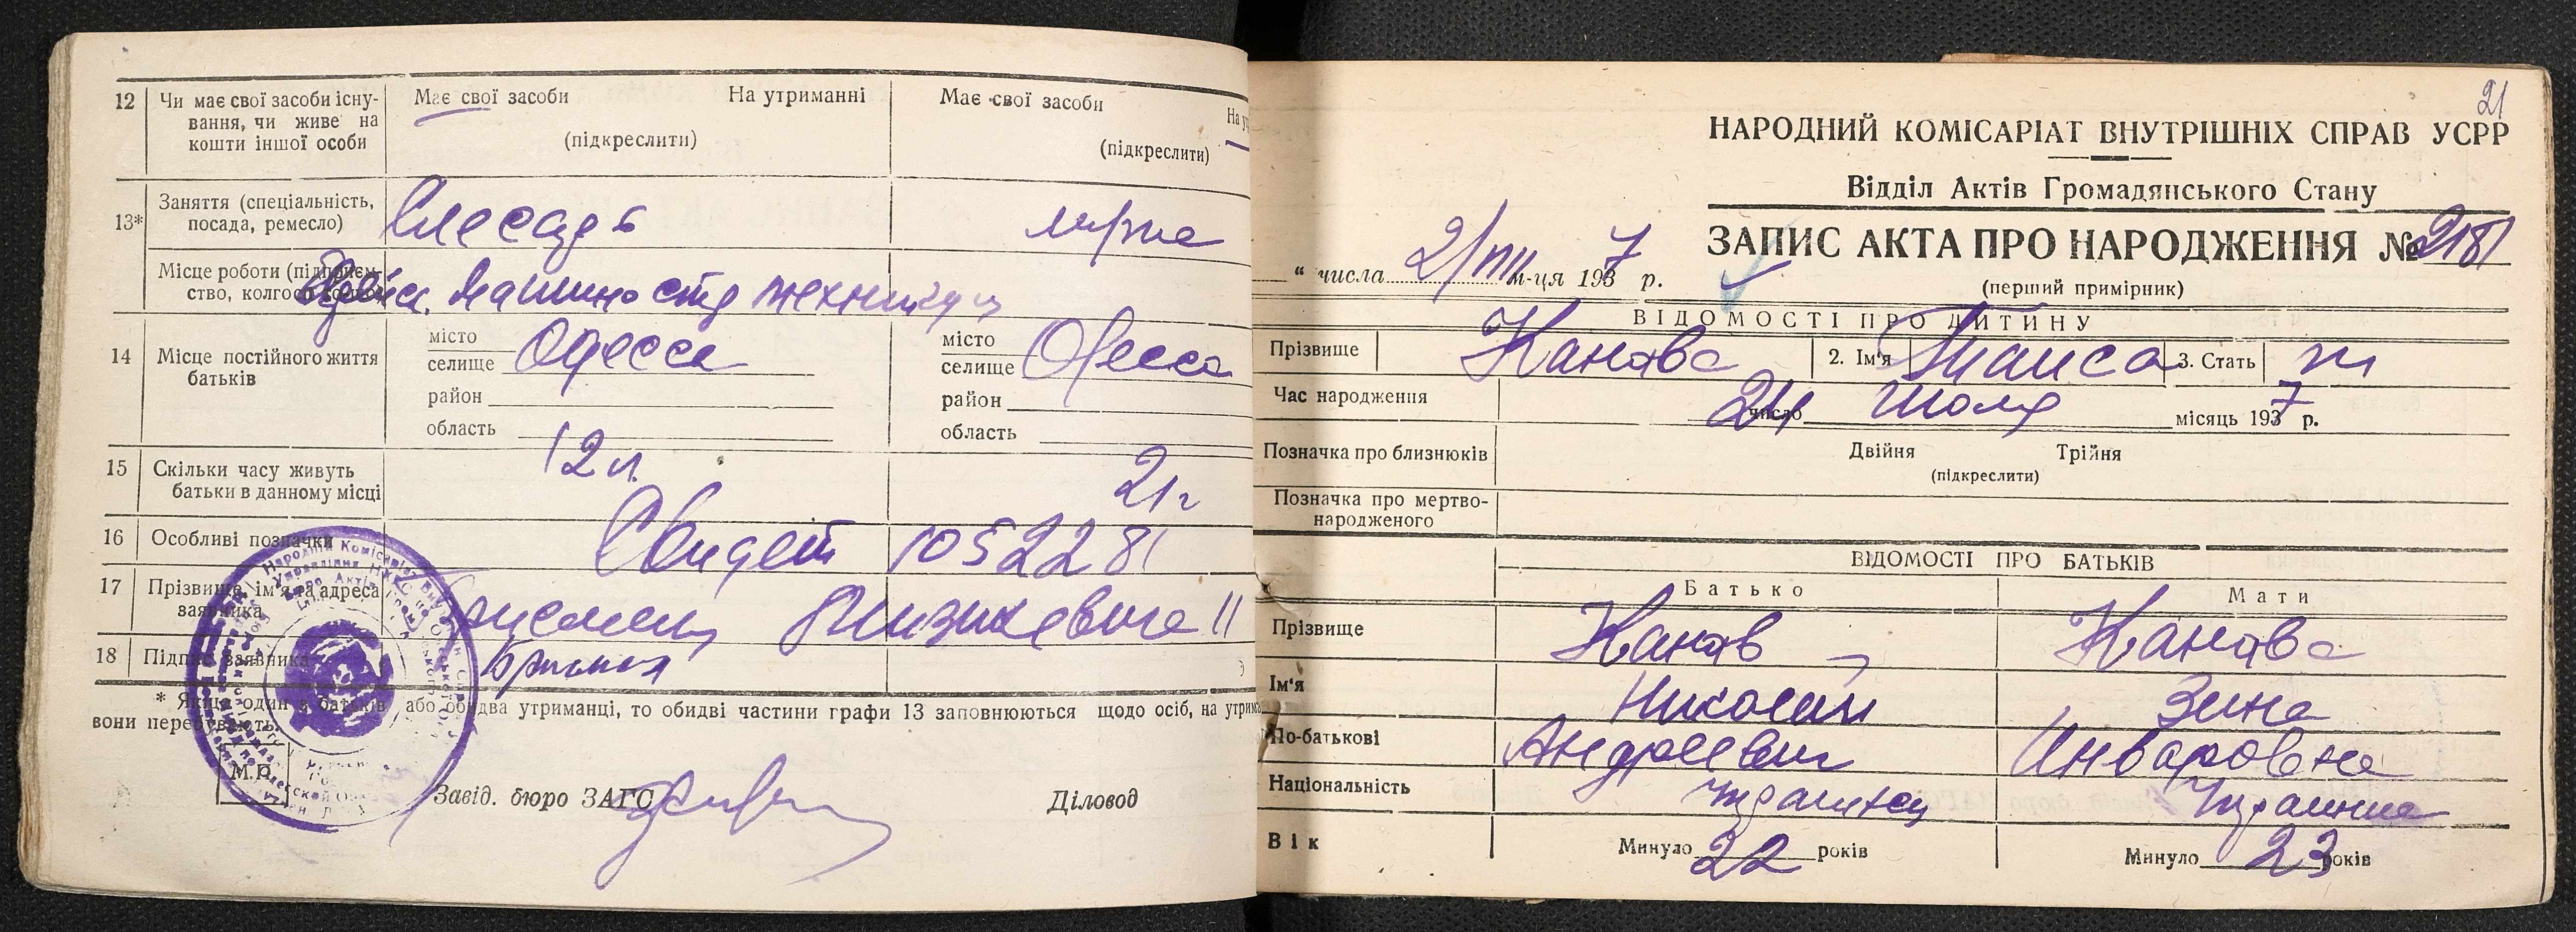 12 Чи має свої засоби існу-
вання, чи живе на
кошти іншої особи
Має свої засоби На утриманні
(підкреслити)
Має свої засоби
(підкреслити)
13* Заняття (спеціальність,
посада, ремесло)
Слесарь
Місце роботи (підприєм-
ство, колгосп
14 Місце постійного життя
батьків
місто
селище Одесса
район
область
місто
селище Одесса
район
область
15 Скільки часу живуть
батьки в данному місці
12 л. 21 г
16 Особливі позначки
Свидет 1052281
17 Прізвище, ім'я та адреса
заявника
18 Підпис заявника
* Якщо один з батьків або обидва утриманці, то обидві частини графи 13 заповнюються щодо осіб, на
вони перебувають.
М.П.
Завід. бюро ЗАГС Діловод
21
НАРОДНИЙ КОМІСАРІАТ ВНУТРІШНІХ СПРАВ УСРР
Відділ Актів Громадянського Стану
ЗАПИС АКТА ПРО НАРОДЖЕННЯ № 2181
(перший примірник)
“ числа 21/VIII м-ця 1937 р.
ВІДОМОСТІ ПРО ДИТИНУ
Прізвище Канява 2. Ім'я Таиса 3. Стать ж
Час народження 24 число Июля місяць 1937 р.
Позначка про близнюків Двійня Трійня
(підкреслити)
Позначка про мертво-
народженого
ВІДОМОСТІ ПРО БАТЬКІВ
Батько Мати
Прізвище Каняв Канява
Ім'я Николай Зина
По-батькові Андреевич
Національність Украинец Украинка
Вік Минуло 22 років Минуло 23 років